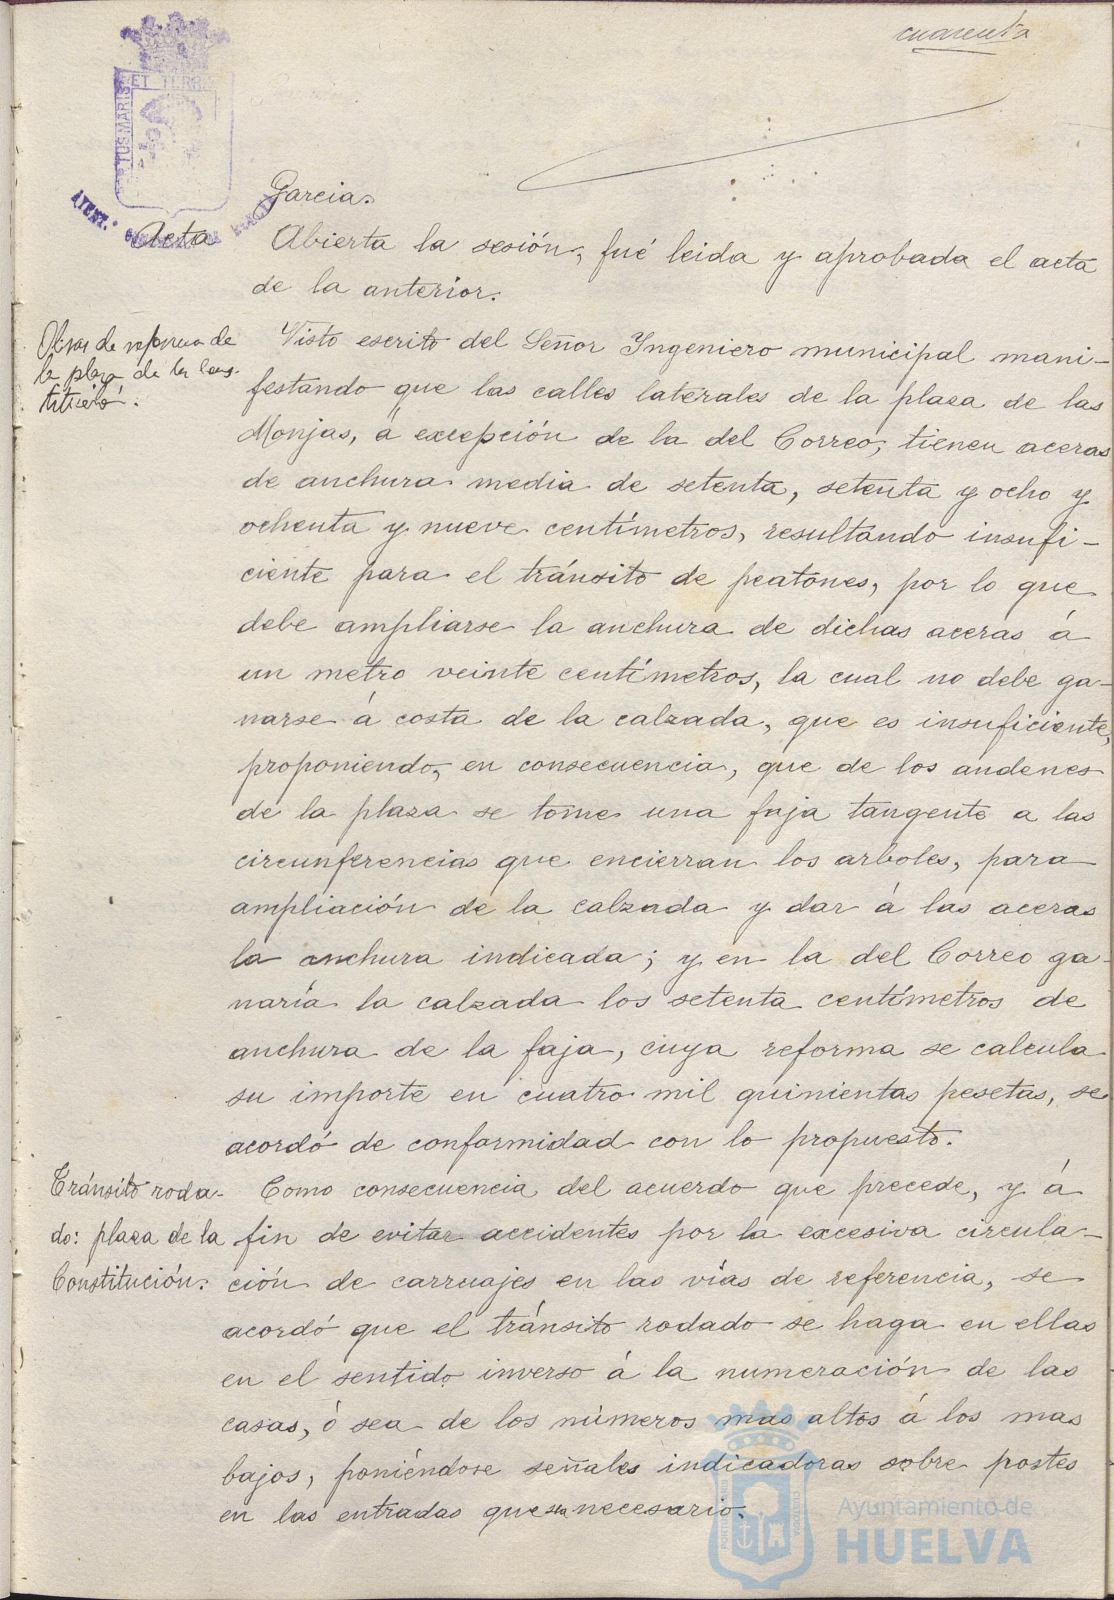 cuarenta
ET TERR
TUS MARIS
AYUNT.º
Garcia.
Acta
Abierta la sesión, fué leida y aprobada el acta
de la anterior.
Obras de reforma de
la plaza de la Cons-
titución.
Visto escrito del Señor Yngeniero municipal mani-
festando que las calles laterales de la plaza de las
Monjas, á excepción de la del Correo, tienen aceras
de anchura media de setenta, setenta y ocho y
ochenta y nueve centímetros, resultando insufi-
ciente para el tránsito de peatones, por lo que
debe ampliarse la anchura de dichas aceras á
un metro veinte centímetros, la cual no debe ga-
narse á costa de la calzada, que es insuficiente,
proponiendo, en consecuencia, que de los andenes
de la plaza se tome una faja tangente a las
circunferencias que encierran los arboles, para
ampliación de la calzada y dar á las aceras
la anchura indicada; y en la del Correo ga-
naría la calzada los setenta centímetros de
anchura de la faja, cuya reforma se calcula
su importe en cuatro mil quinientas pesetas, se
acordó de conformidad con lo propuesto.
Tránsito roda-
do: plaza de la
Constitución.
Como consecuencia del acuerdo que precede, y á
fin de evitar accidentes por la excesiva circula-
ción de carruajes en las vías de referencia, se
acordó que el tránsito rodado se haga en ellas
en el sentido inverso á la numeración de las
casas, ó sea de los números mas altos á los mas
bajos, poniéndose señales indicadoras sobre postes
en las entradas que sea necesario.
Ayuntamiento de
HUELVA